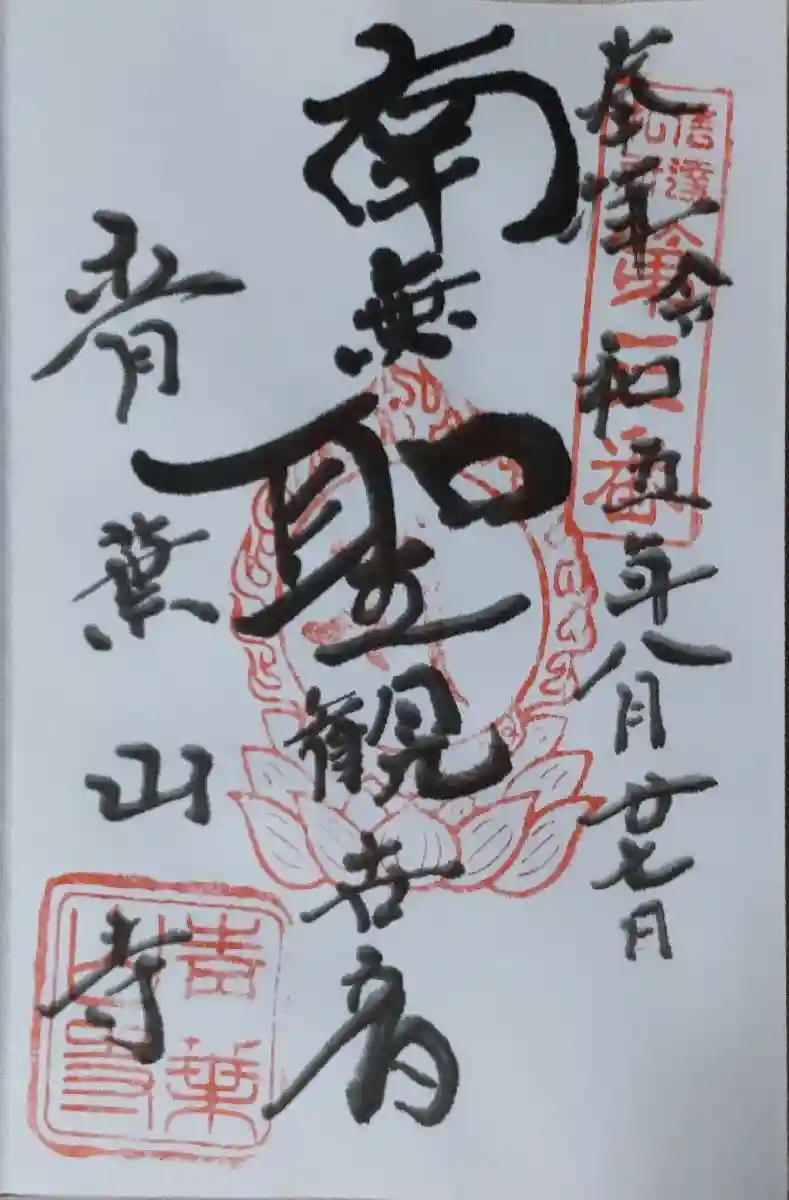 奉拝 令和五年八月廿七日
信達
南無聖観世音
青葉山寺
青葉
山寺